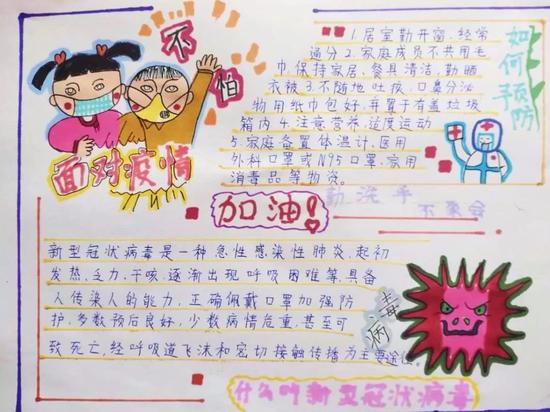 不怕
面对疫情
1.居室勤开窗,经常
通分2.家庭成员不共用毛
巾,保持家居、餐具清洁,勤晒
衣被3.不随地吐痰,口鼻分泌
物用纸巾包好,弃置于有盖垃圾
箱内4.注意营养,适度运动
5.家庭备置体温计、医用
外科口罩或N95口罩、家用
消毒品等物资。
如何预防
勤洗手
不聚会
加油!
新型冠状病毒是一种急性感染性肺炎,起初
发热、乏力、干咳、逐渐出现呼吸困难等,具备
人传染人的能力,正确佩戴口罩加强防
护,多数预后良好,少数病情危重,甚至可
致死亡,经呼吸道飞沫和密切接触传播为主要途径。
病毒
什么叫新型冠状病毒